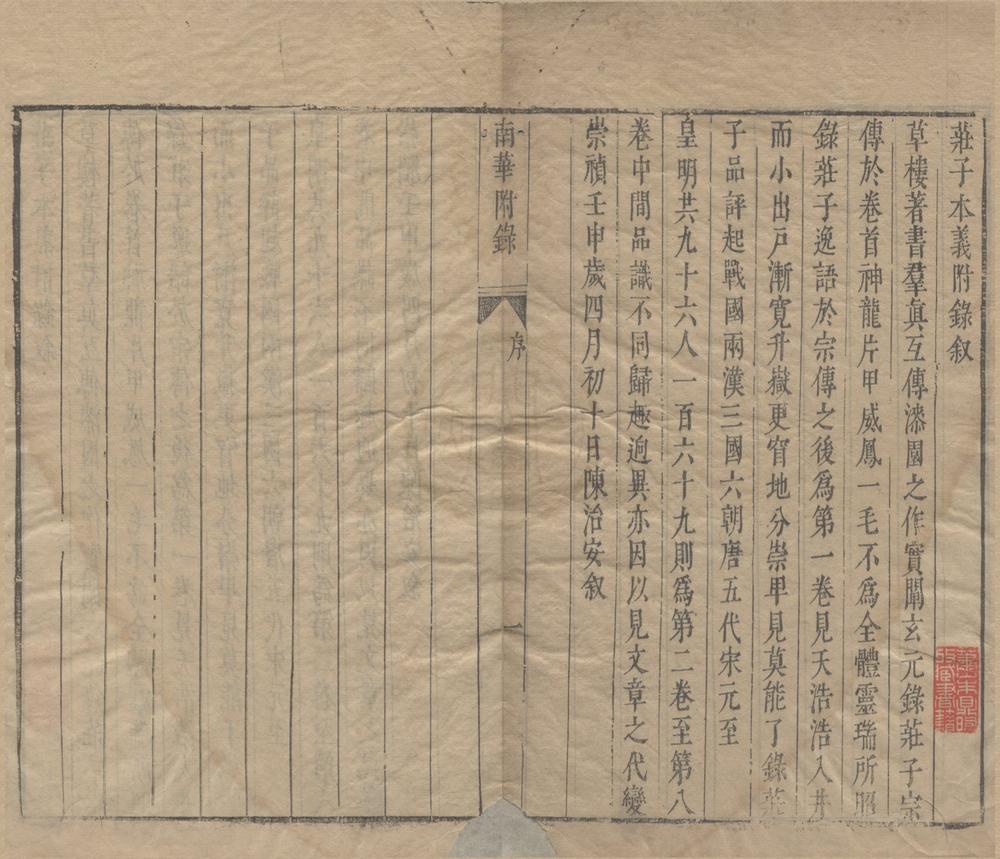 莊子本義附錄叙
草樓著書羣眞互傳漆園之作實闡玄元錄莊子宗
傳於卷首神龍片甲威鳳一毛不爲全體靈瑞所昭
錄莊子逸語於宗傳之後爲第一卷見天浩浩入井
而小出戸漸寛升嶽更窅地分崇卑見莫能了錄莊
子品評起戰國兩漢三國六朝唐五代宋元至
皇明共九十六人一百六十九則爲第二卷至第八
卷中間品識不同歸趣逈異亦因以見文章之代變
崇禎壬申歲四月初十日陳治安叙
南華附錄 序 一